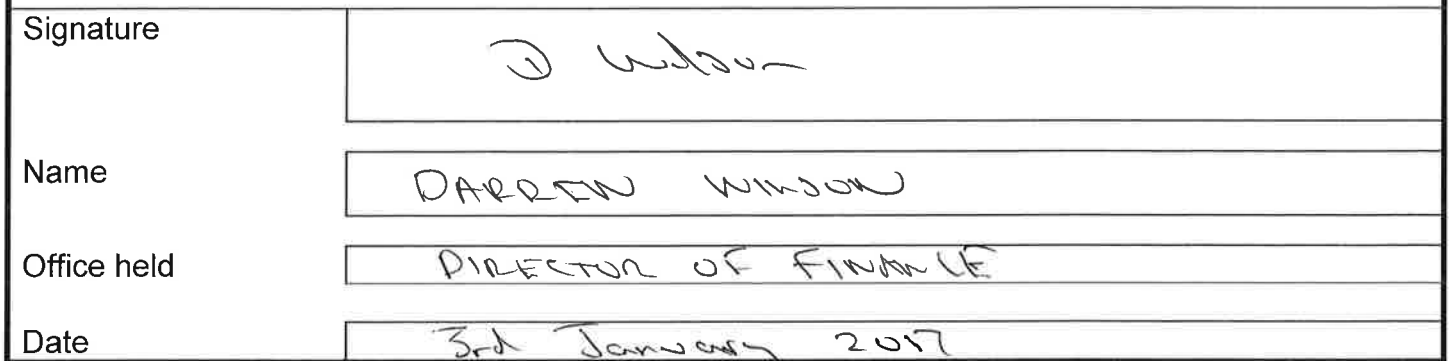 Signature
D Wilson
Name
DARREN WILSON
Office held
DIRECTOR OF FINANCE
Date
3rd January 2017